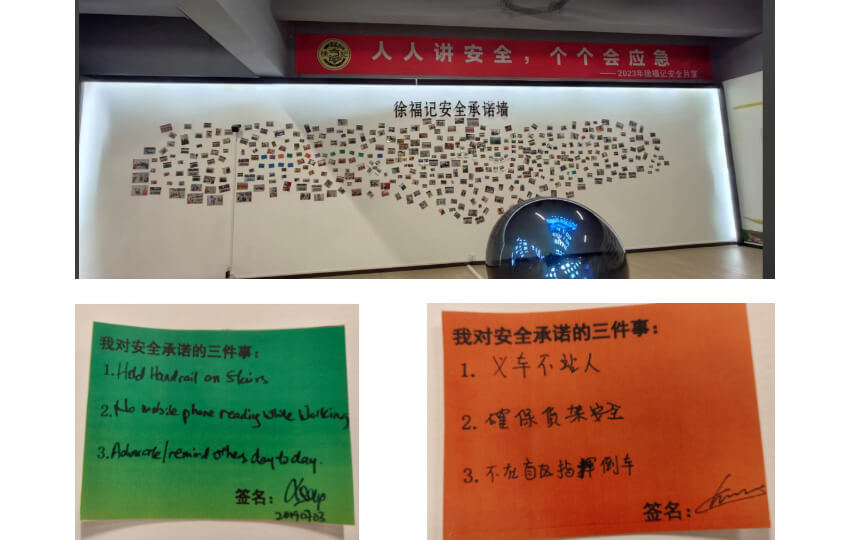 人人讲安全，个个会应急
——2023年徐福记安全月宣
徐福记安全承诺墙
我对安全承诺的三件事：
1. Hold Handrail on Stairs
2. No mobile phone reading while working
3. Advocate/remind others day to day.
签名：
20190703
我对安全承诺的三件事：
1. 叉车不站人
2. 確保貨架安全
3. 不在盲区指挥倒车
签名：